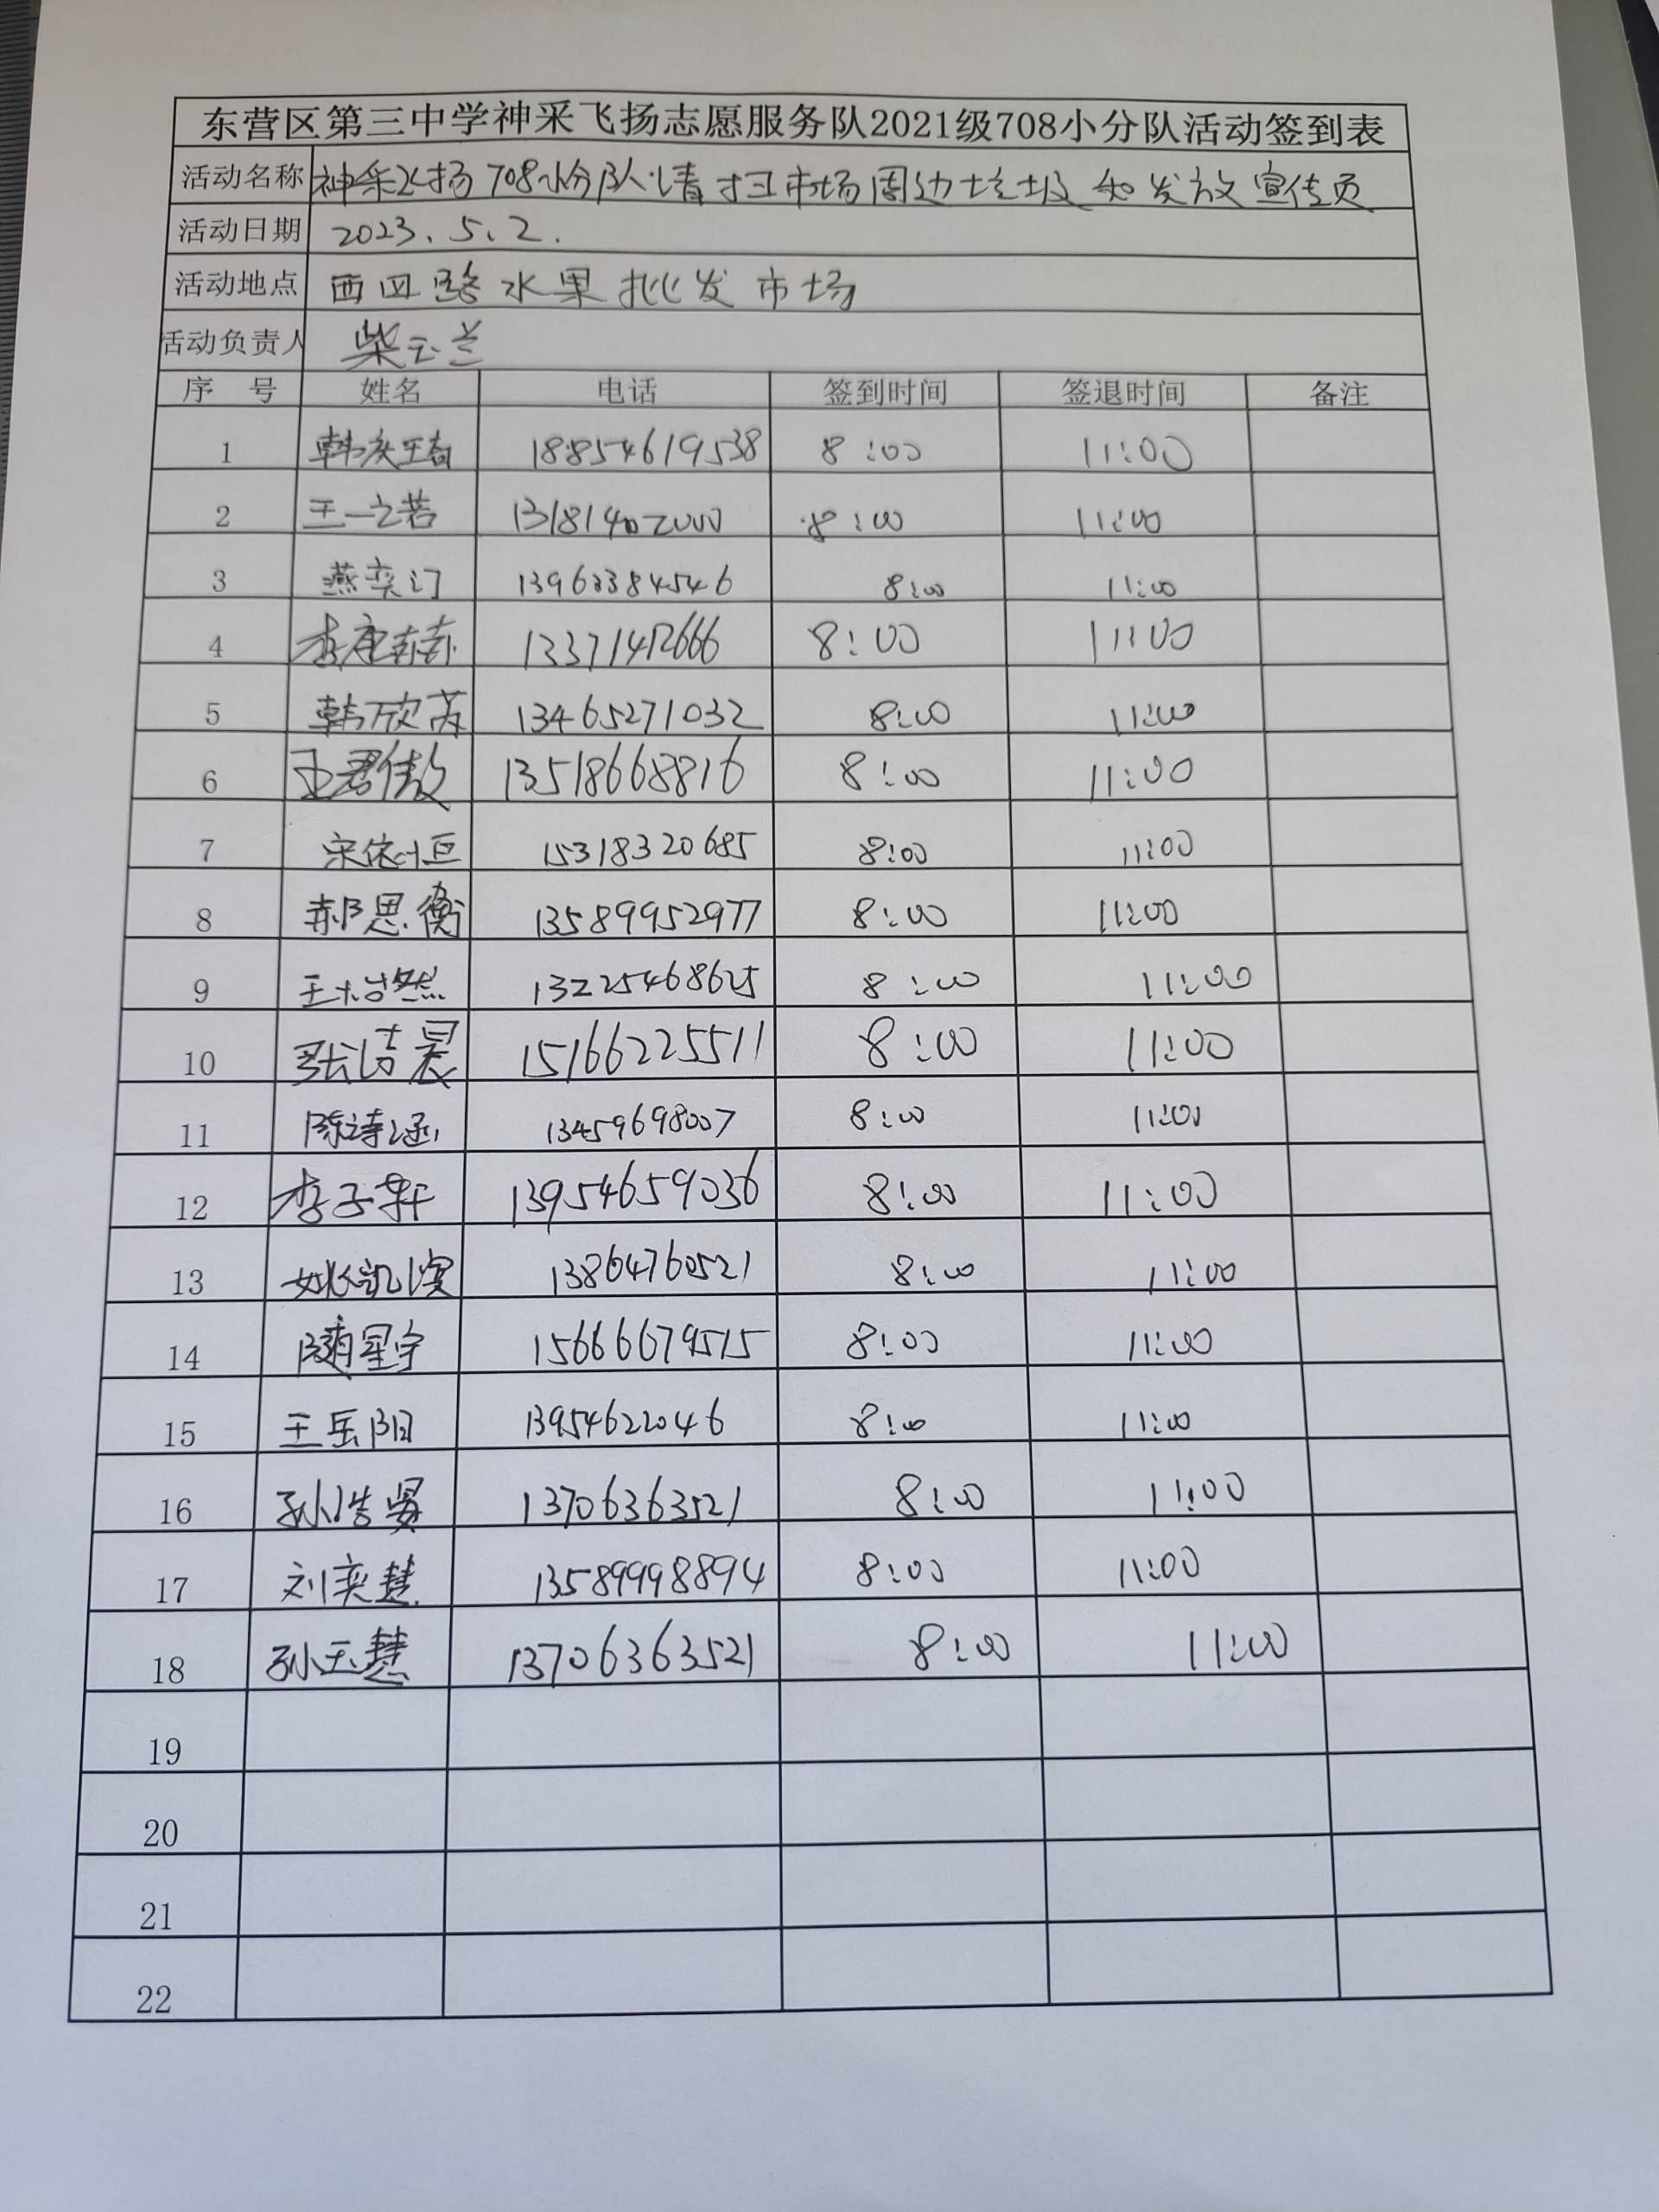 东营区第三中学神采飞扬志愿服务队2021级708小分队活动签到表
活动名称 神采飞扬708小分队清扫市场周边垃圾和发放宣传页
活动日期 2023.5.2.
活动地点 西四路水果批发市场
活动负责人 柴云兰
序 号 姓名 电话 签到时间 签退时间 备注
1 18854619538 8:00 11:00
2 王一之若 13181402000 8:00 11:00
3 13963384546 8:00 11:00
4 13371412666 8:00 11:00
5 韩欣芮 13465271032 8:00 11:00
6 王君傲 13518668816 8:00 11:00
7 宋依恒 15318320685 8:00 11:00
8 郝思衡 13589952977 8:00 11:00
9 王怡然 13225468625 8:00 11:00
10 张洁晨 15166225511 8:00 11:00
11 陈诗涵 13459698007 8:00 11:00
12 李子轩 13954659036 8:00 11:00
13 姚凯滨 13864760521 8:00 11:00
14 隋星宇 15666679515 8:00 11:00
15 王岳阳 13954622046 8:00 11:00
16 孙浩贤 13706363521 8:00 11:00
17 刘奕慧 13589998894 8:00 11:00
18 孙玉慧 13706363521 8:00 11:00
19
20
21
22